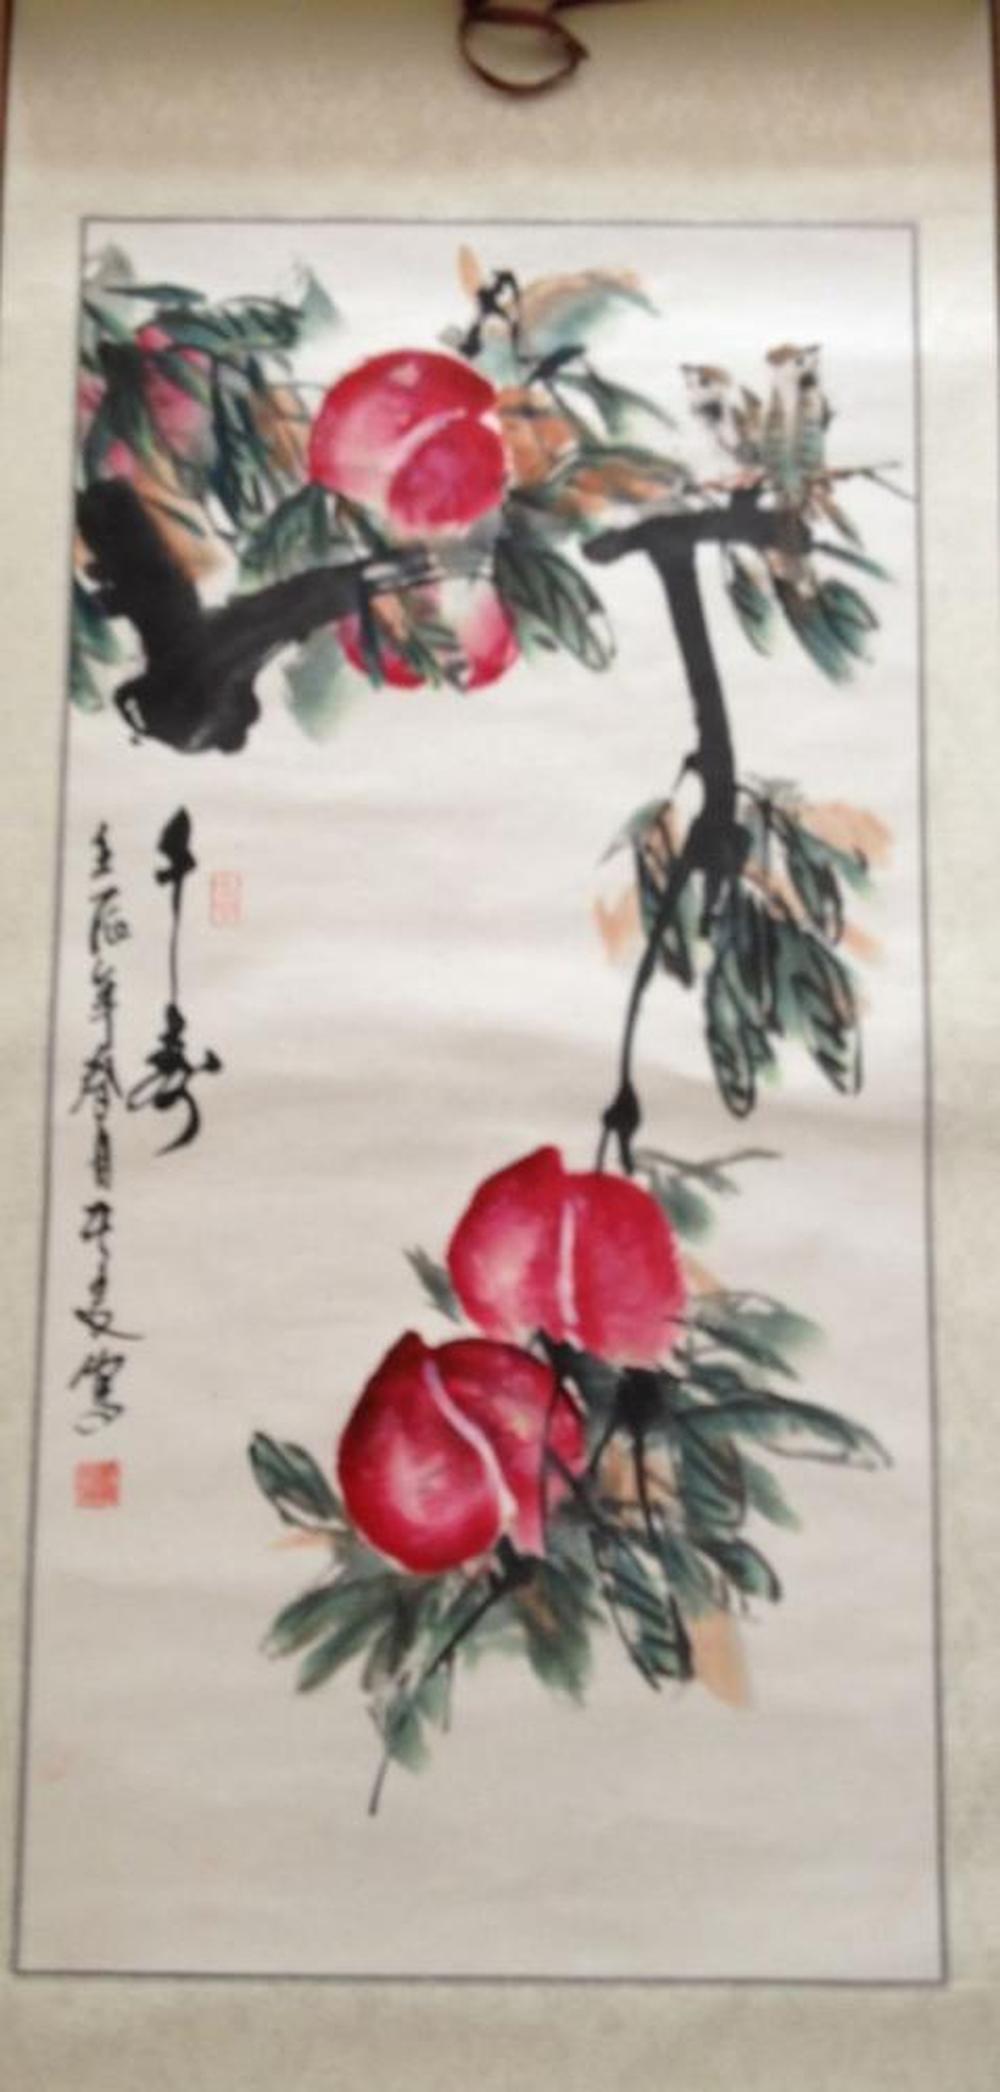 千寿
壬辰年春月李文写